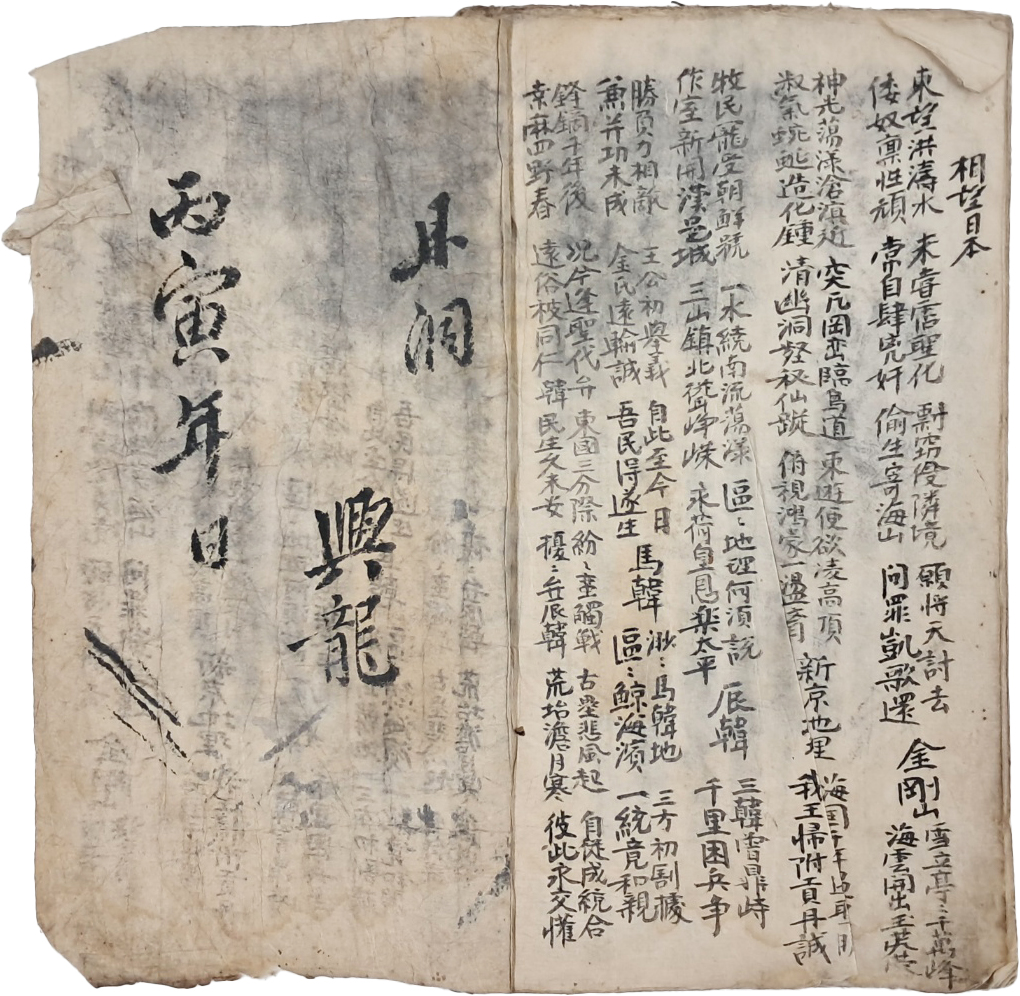 相望日本
東望洪濤水 未嘗霑聖化 剽窃侵隣境 願將天討去 金剛山 雪立亭〻千萬峰
倭奴禀性頑 常自肆兇奸 偷生寄海山 問罪凱歌還 海雲開出玉芙蓉
神光蕩漾滄溟近 突兀岡巒臨鳥道 東遊便欲凌高頂 新京地理 海国千年
淑氣蜿蜒造化鍾 清幽洞壑秘仙蹤 俯視鴻濛一盪胷 我王歸附貢丹誠
牧民寵受朝鮮號 一水繞南流蕩漾 區〻地理何須說 辰韓 三韓曾鼎峙
作室新開漢邑城 三山鎮北聳崢嶸 永荷皇恩樂太平 千里困兵爭
勝負力相敵 王公初舉義 自此至今日 馬韓 渺〻馬韓地 三方初割據
兼并功未成 金氏遠輸誠 吾民得遂生 區〻鯨海濱 一統竟和親
鋒鏑千年後 况今逢聖代 弁韓 東國三分際 紛〻蠻觸戰 古壘悲風起 自從成統合
桑麻四野春 遠俗被同仁 民生久未安 擾〻弁辰韓 荒坮澹月寒 彼此永交懽
丹洞
興龍
丙寅年 日